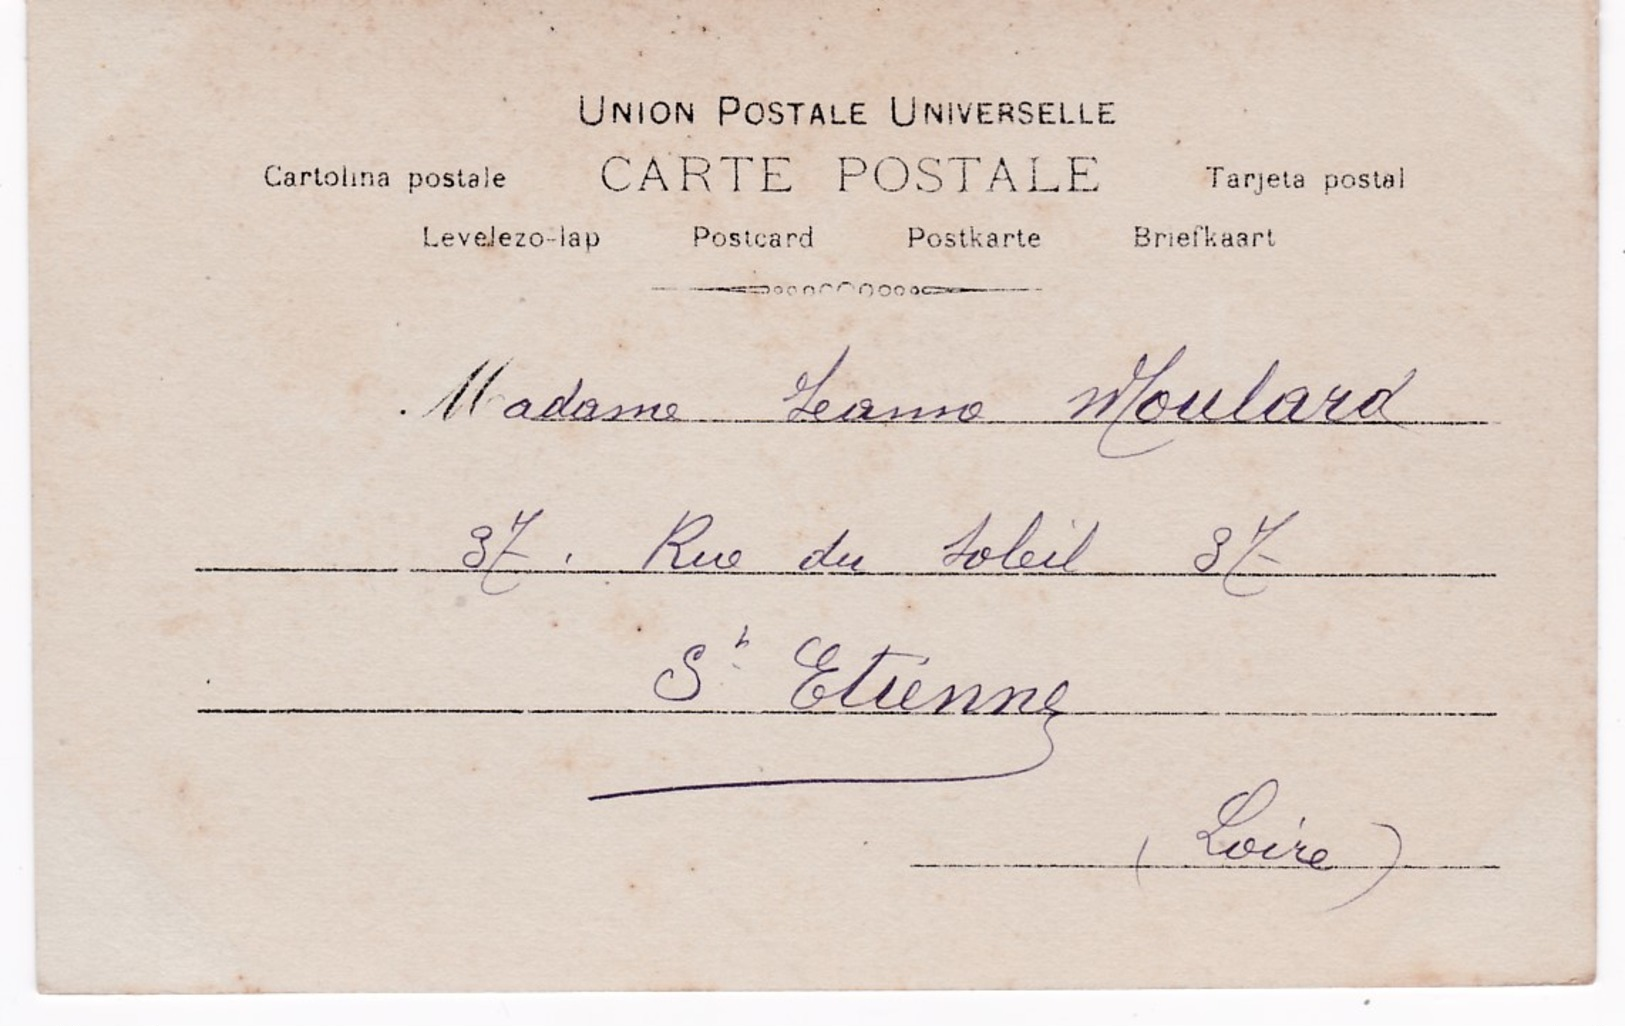 UNION POSTALE UNIVERSELLE
Cartolina postale CARTE POSTALE Tarjeta postal
Levelezo-lap Postcard Postkarte Briefkaart
Madame Jeanne Moulard
37. Rue du Soleil 37
St Etienne
(Loire)